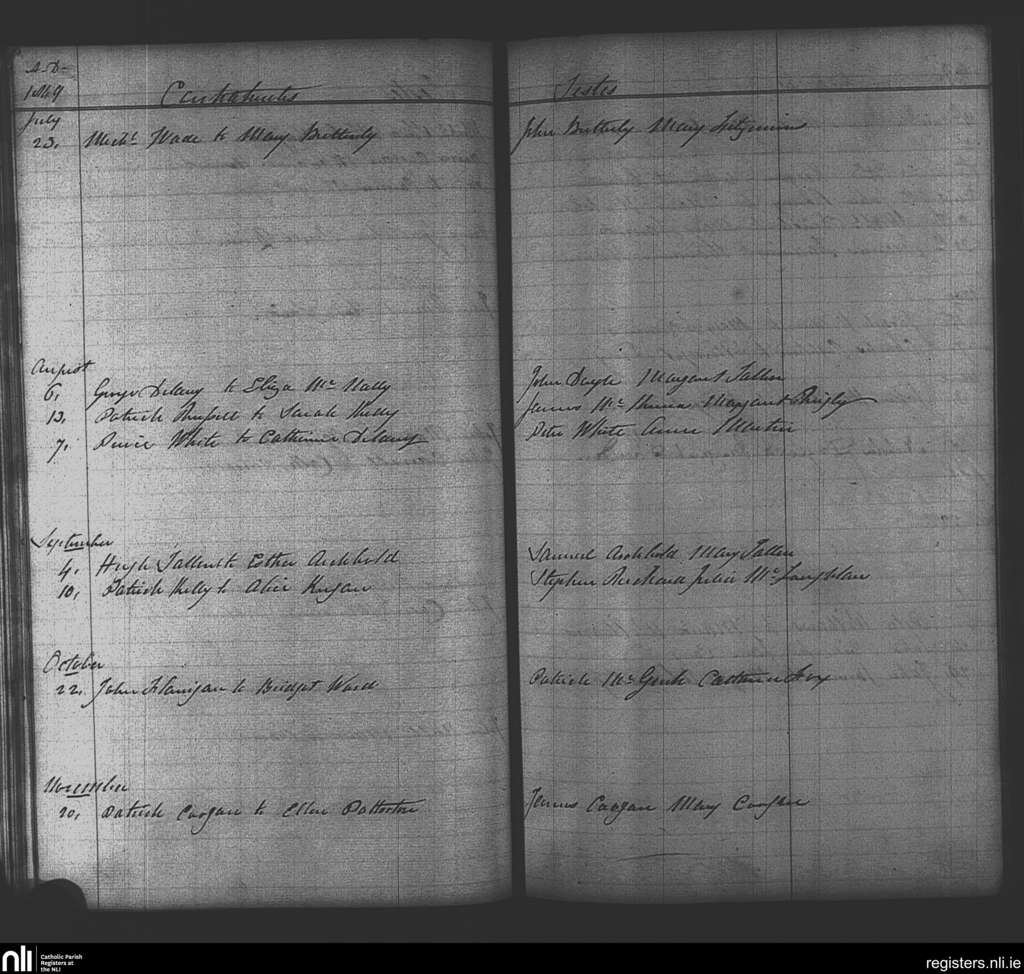 A.D.
1849 Contrahentes Testes
July
23. Michl. Wade to Mary Butterly John Butterly Mary Fitzsimins
August
6. George Delany to Eliza Mc Nally John Doyle Margaret Fallon
13. Patrick Russell to Sarah Kelly James Mc Margaret Quigley
7. White to Catherine Delany Peter White Anne Martin
September
4. Hugh Fallon to Esther Archbold Samuel Archbold Mary Fallon
10. Patrick Kelly to Alice Stephen Julia Mc Loughlan
October
22. John Flanigan to Bridget Ward Patrick Catherine Fox
November
20. Patrick Coogan to Ellen James Coogan Mary Coogan
nli Catholic Parish
Registers at
the NLI
registers.nli.ie